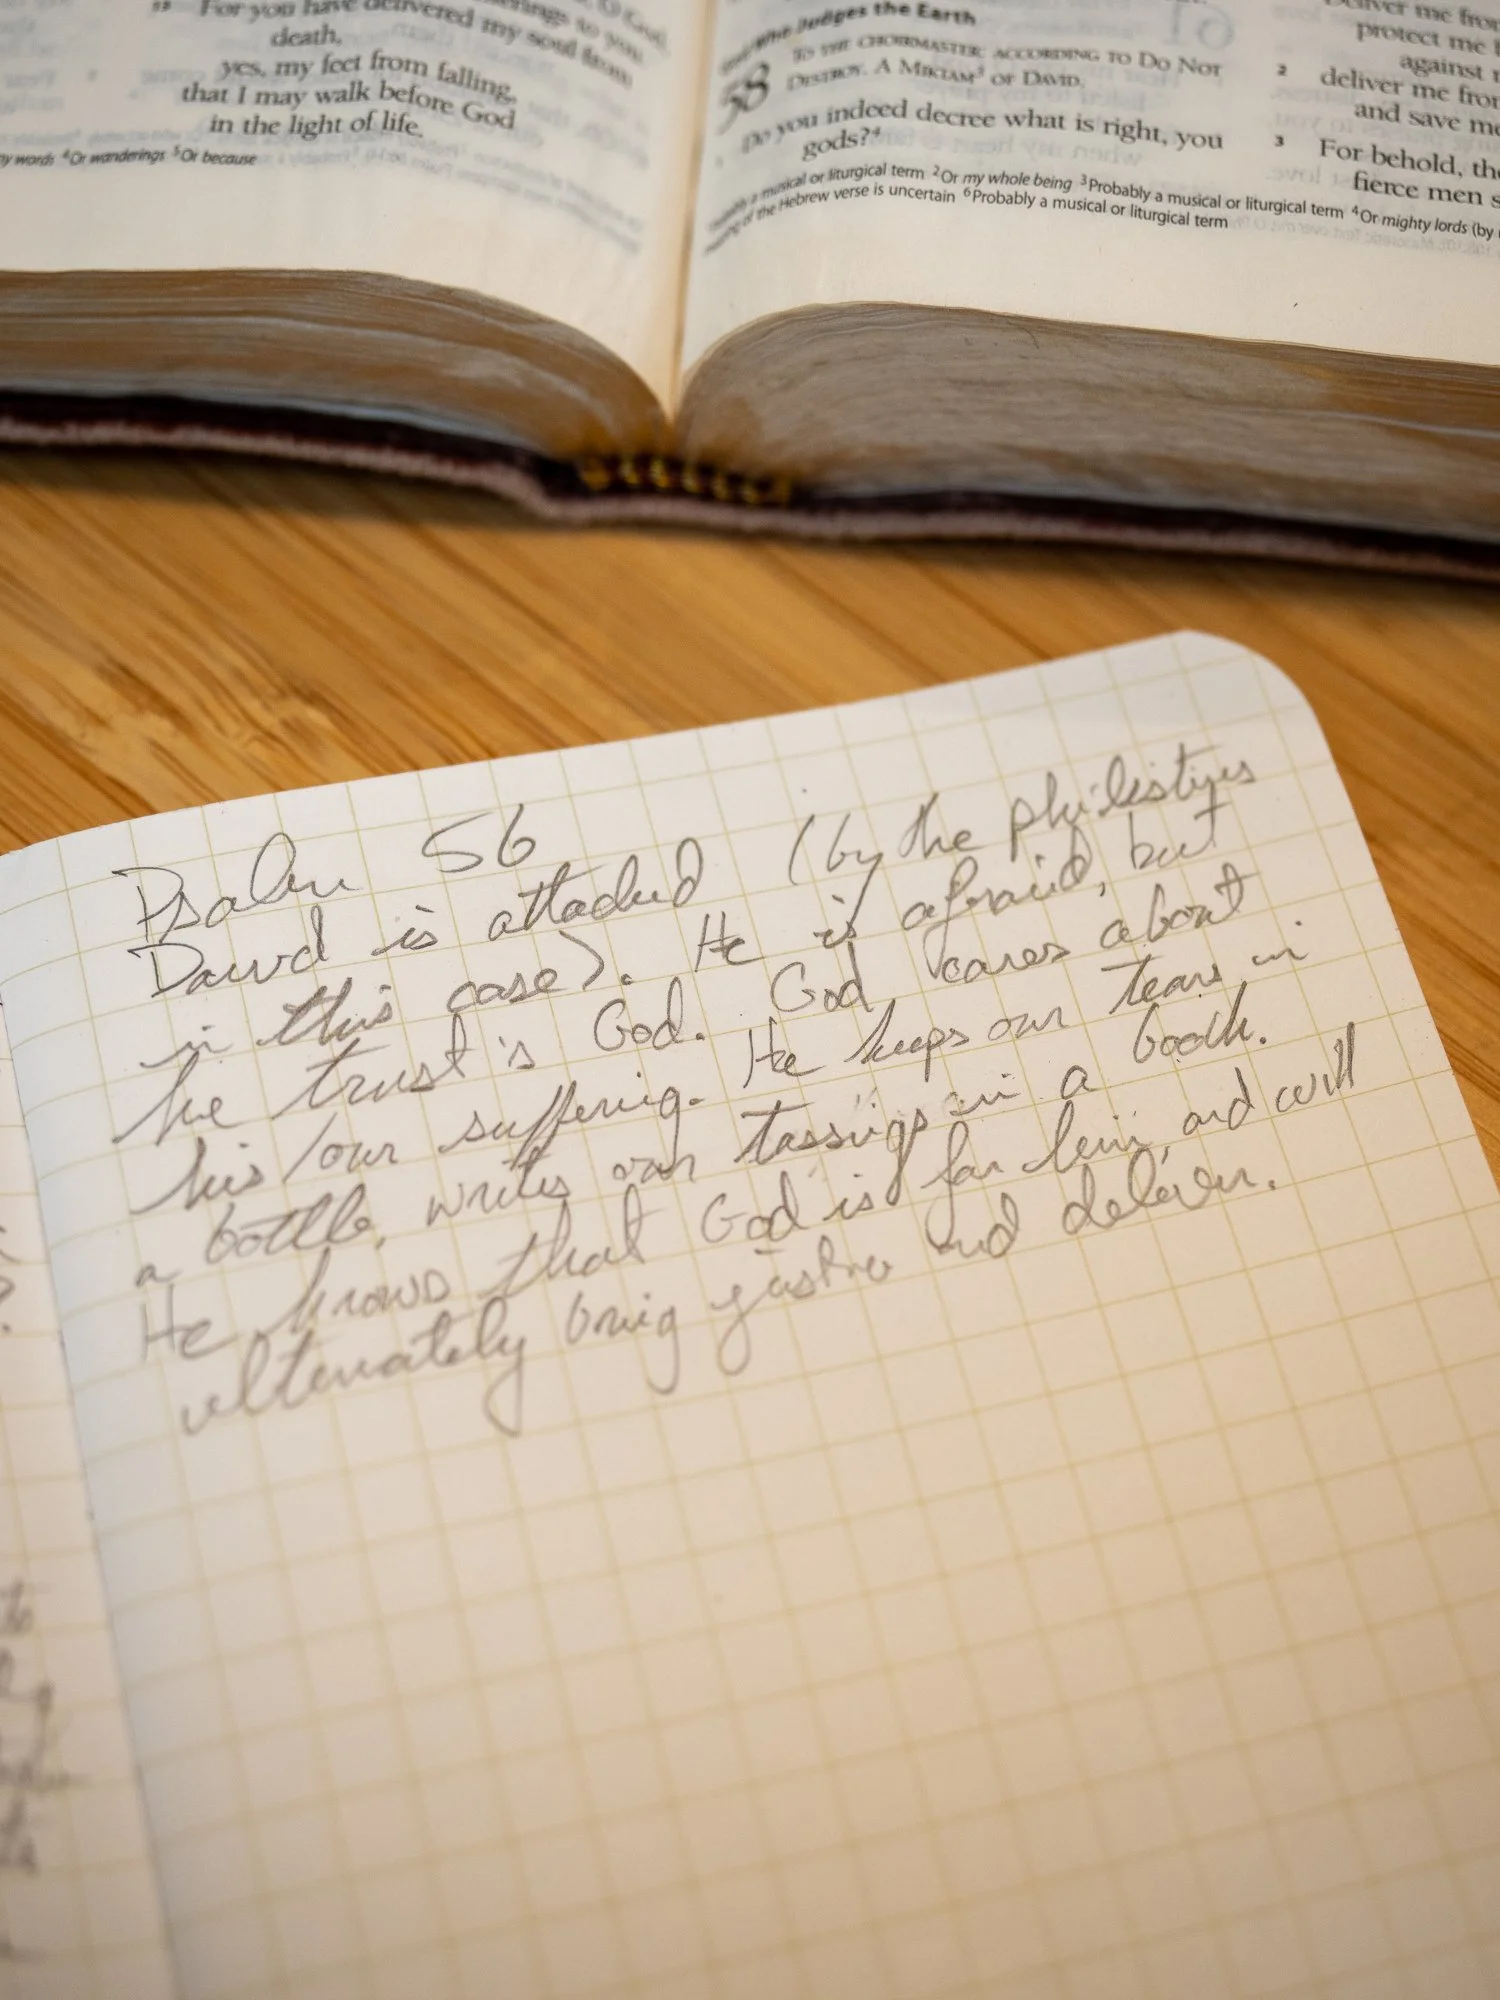 13 For you have delivered my soul from
death,
yes, my feet from falling,
that I may walk before God
in the light of life.
my words 4Or wanderings 5Or because
Who Judges the Earth
58 To the choirmaster: according to Do Not
Destroy. A Miktam3 of David.
Do you indeed decree what is right, you
gods?4
deliver me from
protect me
against
2 deliver me from
and save me
3 For behold, the
fierce men
a musical or liturgical term 2Or my whole being 3Probably a musical or liturgical term 4Or mighty lords (by
of the Hebrew verse is uncertain 6Probably a musical or liturgical term
Psalm 56
David is attacked (by the philistines
in this case). He is afraid, but
he trust's God. God cares about
his/our suffering. He keeps our tears in
a bottle, writes our tossings in a book.
He knows that God is for him, and will
ultimately bring justice and deliver.